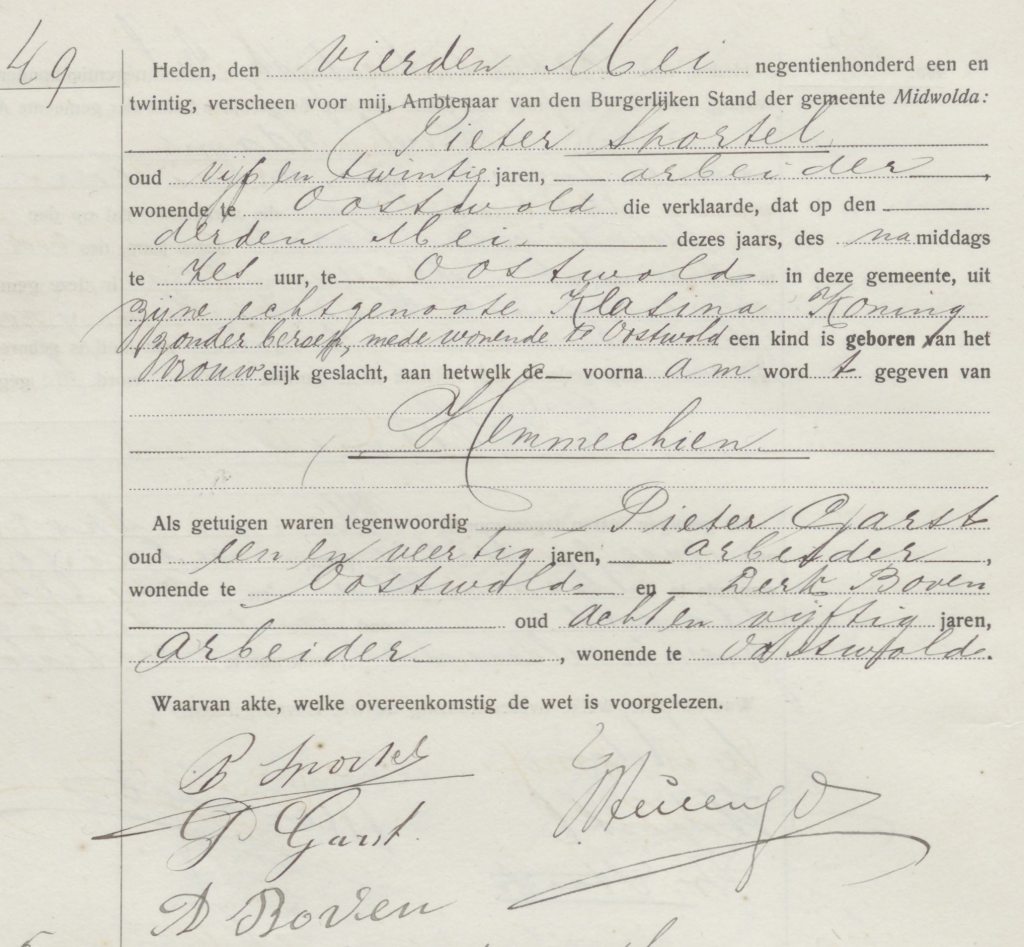 49
Heden, den vierden Mei negentienhonderd een en
twintig, verscheen voor mij, Ambtenaar van den Burgerlijken Stand der gemeente Midwolda:
Pieter Sportel
oud vijf en twintig jaren, arbeider,
wonende te Oostwold die verklaarde, dat op den
derden Mei dezes jaars, des namiddags
te zes uur, te Oostwold in deze gemeente, uit
zijne echtgenoote Klasina Koning
zonder beroep, mede wonende te Oostwold een kind is geboren van het
vrouwelijk geslacht, aan hetwelk de voornaam wordt gegeven van
Hemmechien
Als getuigen waren tegenwoordig Pieter Garst
oud een en veertig jaren, arbeider,
wonende te Oostwold en Derk Boven
oud acht en vijftig jaren,
arbeider, wonende te Oostwold.
Waarvan akte, welke overeenkomstig de wet is voorgelezen.
P Sportel
P Garst.
D Boven